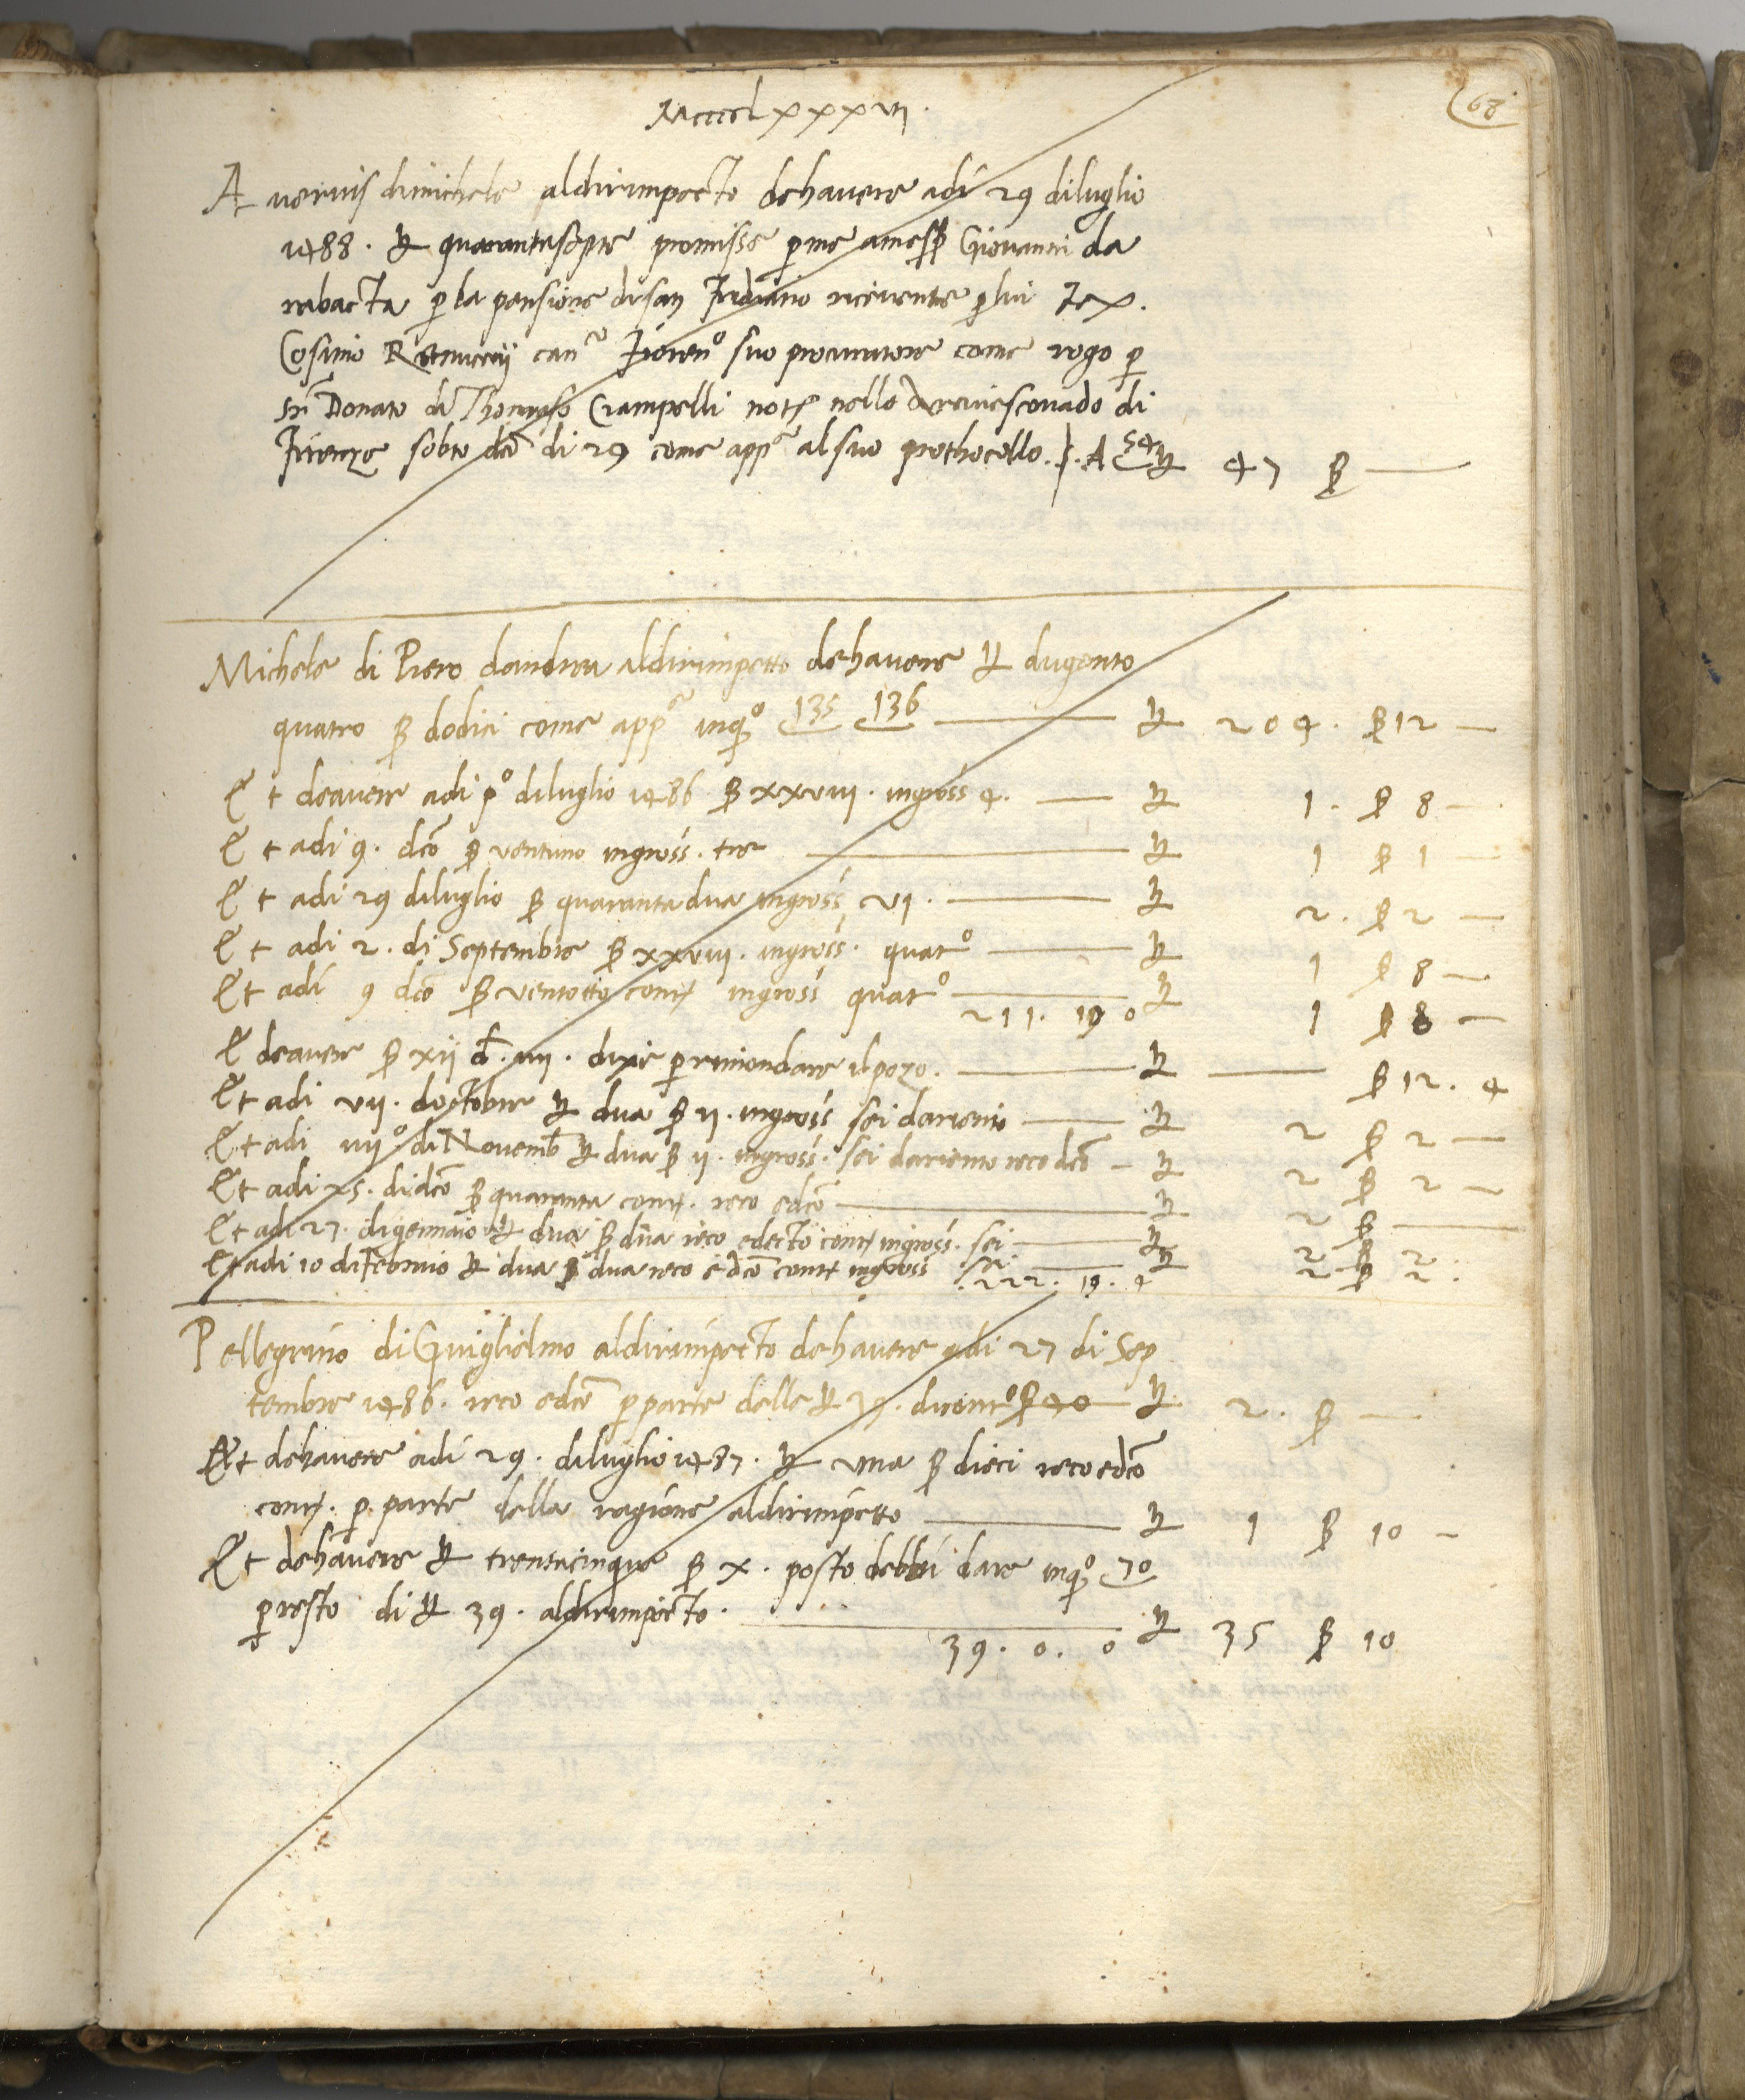 Mcccclxxxvii.
68
Avervis di michele aldirimpecto dehavere adi 29 diluglio
1488. ł quarantasepte promisse p me a messer Giovanni da
rabacta p la pensione disan Fridiano ricevente p lui
Cosimo can° Fioren° suo procuratore come rogo p
Sr Donato di Thomaso Ciampelli not nello Arcivescovado di
Firenze sotto dco di 29 come app al suo prothocollo . A 54 ł 47 ß —
Michele di Piero dandrea aldirimpetto dehavere ł dugento
quatro ß dodici come app inqo 135 136 — ł 204. ß 12 —
Et deavere adi p° diluglio 1486 ß xxviii. ingross 4. — ł 1. ß 8 —
Et adi 9. dco ß ventuno ingross. tre — ł 1 ß 1 —
Et adi 29 diluglio ß quarantadua ingross vi. — ł 2. ß 2 —
Et adi 2. di Septembre ß xxviii. ingross. quat° — ł 1 ß 8 —
Et adi 9 dco ß ventotto cont ingross quat° — ł 1 ß 8 —
211. 19 0
E deavere ß xii d. iiii. dixe p rimondare il pozo. — ł — ß 12. 4
Et adi vii. doctobre ł dua ß ii. ingross sei dariento — ł 2 ß 2 —
Et adi iiii° di Novemb ł dua ß ii. ingross. sei dariento reco dco — ł 2 ß 2 —
Et adi 25. di dco ß quaranta cont. reco edco — ł 2 ß —
Et adi 27. digennaio ł dua ß dua reco edecto cont ingross. sei — ł 2 ß 2
Et adi 10 di Febraio ł dua ß dua reco e dco cont ingross sei ł 2 ß 2.
222. 19. 4
Pellegrino di Guiglielmo aldirimpecto dehavere adi 27 di Sep
tembre 1486. reco edco p parte delle ł 39. dicont° ß 40 ł 2. ß —
Et dehavere adi 29. diluglio 1487. ł una ß dieci reco edco
cont. p parte della ragione aldirimpetto — ł 1 ß 10 —
Et dehavere ł trentacinque ß x. posto debbi dare inqo 70
p resto di ł 39. aldirimpecto. — ł 35 ß 10
39. 0. 0